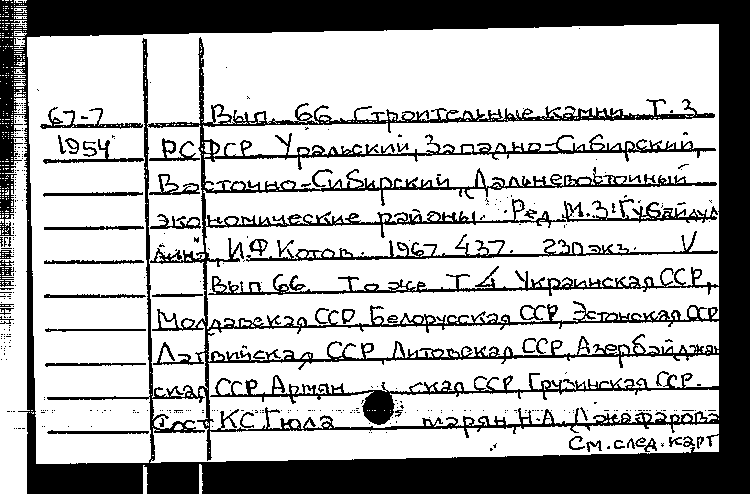 67-7 Вып. 66. Строительные камни. Т. 3
1954 РСФСР Уральский, Западно-Сибирский,
Восточно-Сибирский, Дальневосточный
экономические районы. Ред. М.З. Губайдул
лина, И.Ф. Котов. 1967. 437. 230 экз. V
Вып 66. То же Т 4. Украинская ССР,
Молдавская ССР, Белорусская ССР, Эстонская ССР
Латвийская ССР, Литовская ССР, Азербайджан
ская ССР, Армян ская ССР, Грузинская ССР.
Сост К С Гюла марян, Н.А. Джафарова
См. след. карт